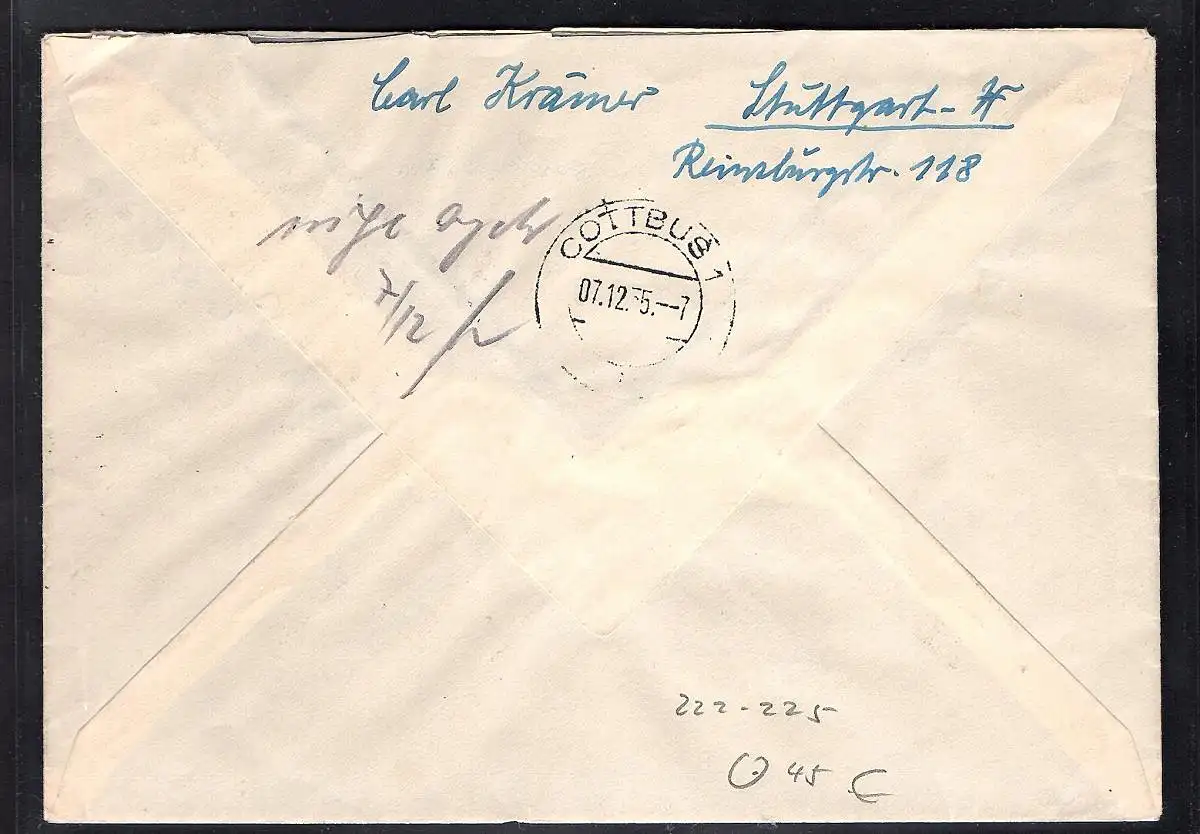 Carl Krämer Stuttgart-W
Reinsburgstr. 118
COTTBUS 1
07.12.55.--7
7/12
222-225
45 €